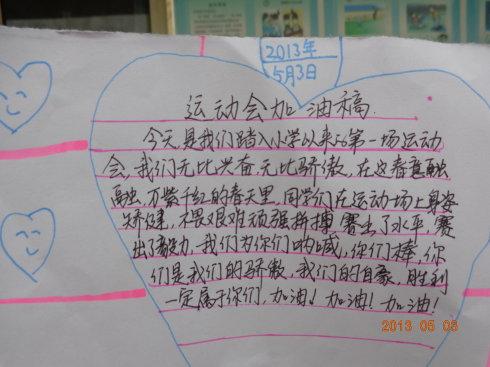 2013年
5月3日
运动会加油稿
今天是我们踏入小学以来的第一场运动
会,我们无比兴奋,无比骄傲,在这春意融
融,万紫千红的春天里,同学们在运动场上身姿
矫健,不畏艰难顽强拼搏,赛出了水平,赛
出了毅力,我们为你们呐喊,你们棒,你
们是我们的骄傲,我们的自豪,胜利
一定属于你们,加油!加油!加油!
2013 05 05